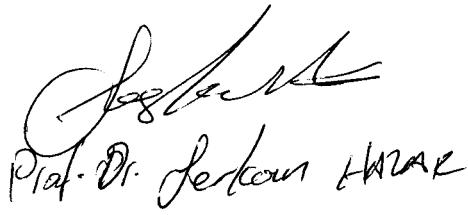 Prof. Dr. Serkan HAZAR